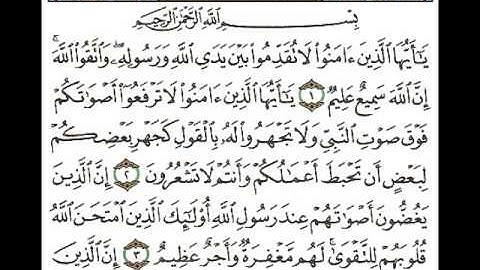 بِسْمِ ٱللَّهِ ٱلرَّحْمَٰنِ ٱلرَّحِيمِ
يَٰٓأَيُّهَا ٱلَّذِينَ ءَامَنُوا۟ لَا تُقَدِّمُوا۟ بَيْنَ يَدَىِ ٱللَّهِ وَرَسُولِهِۦ ۖ وَٱتَّقُوا۟ ٱللَّهَ ۚ
إِنَّ ٱللَّهَ سَمِيعٌ عَلِيمٌ ١ يَٰٓأَيُّهَا ٱلَّذِينَ ءَامَنُوا۟ لَا تَرْفَعُوٓا۟ أَصْوَٰتَكُمْ
فَوْقَ صَوْتِ ٱلنَّبِىِّ وَلَا تَجْهَرُوا۟ لَهُۥ بِٱلْقَوْلِ كَجَهْرِ بَعْضِكُمْ
لِبَعْضٍ أَن تَحْبَطَ أَعْمَٰلُكُمْ وَأَنتُمْ لَا تَشْعُرُونَ ٢ إِنَّ ٱلَّذِينَ
يَغُضُّونَ أَصْوَٰتَهُمْ عِندَ رَسُولِ ٱللَّهِ أُو۟لَٰٓئِكَ ٱلَّذِينَ ٱمْتَحَنَ ٱللَّهُ
قُلُوبَهُمْ لِلتَّقْوَىٰ ۚ لَهُم مَّغْفِرَةٌ وَأَجْرٌ عَظِيمٌ ٣ إِنَّ ٱلَّذِينَ